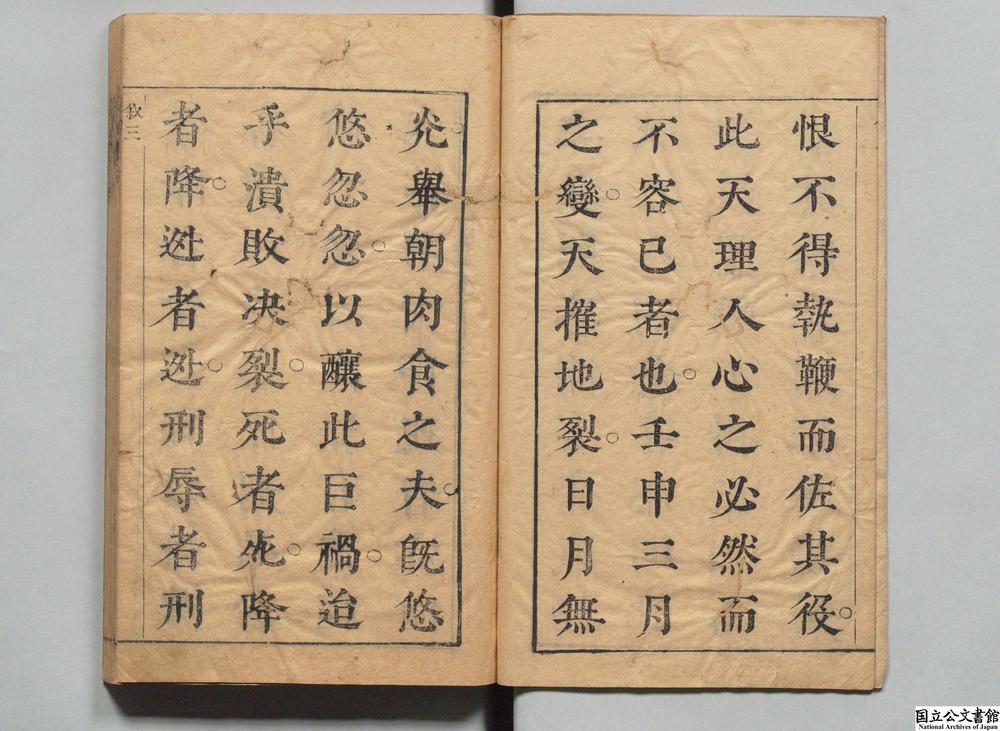 恨不得執鞭而佐其役。
此天理人心之必然而
不容已者也。壬申三月
之變。天摧地裂。日月無
灮。舉朝肉食之夫。旣悠
悠忽忽。以釀此巨禍。迨
乎潰敗决裂。死者死。降
者降。迯者迯。刑辱者刑
叙三
国立公文書館
National Archives of Japan